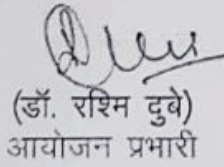 (डॉ. रश्मि दुबे)
आयोजन प्रभारी